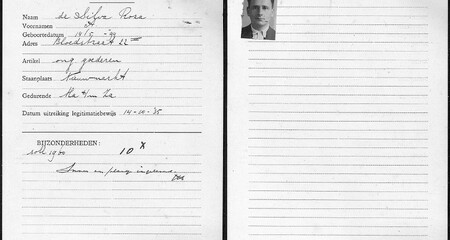 Naam de Silva Rosa
Voornamen A
Geboortedatum 19/5 -99
Adres Bloedstraat 22 III
Artikel ong. goederen
Staanplaats Nieuwmarkt
Gedurende Ma t/m Za
Datum uitreiking legitimatiebewijs 14-10-35
BIJZONDERHEDEN:
10 x